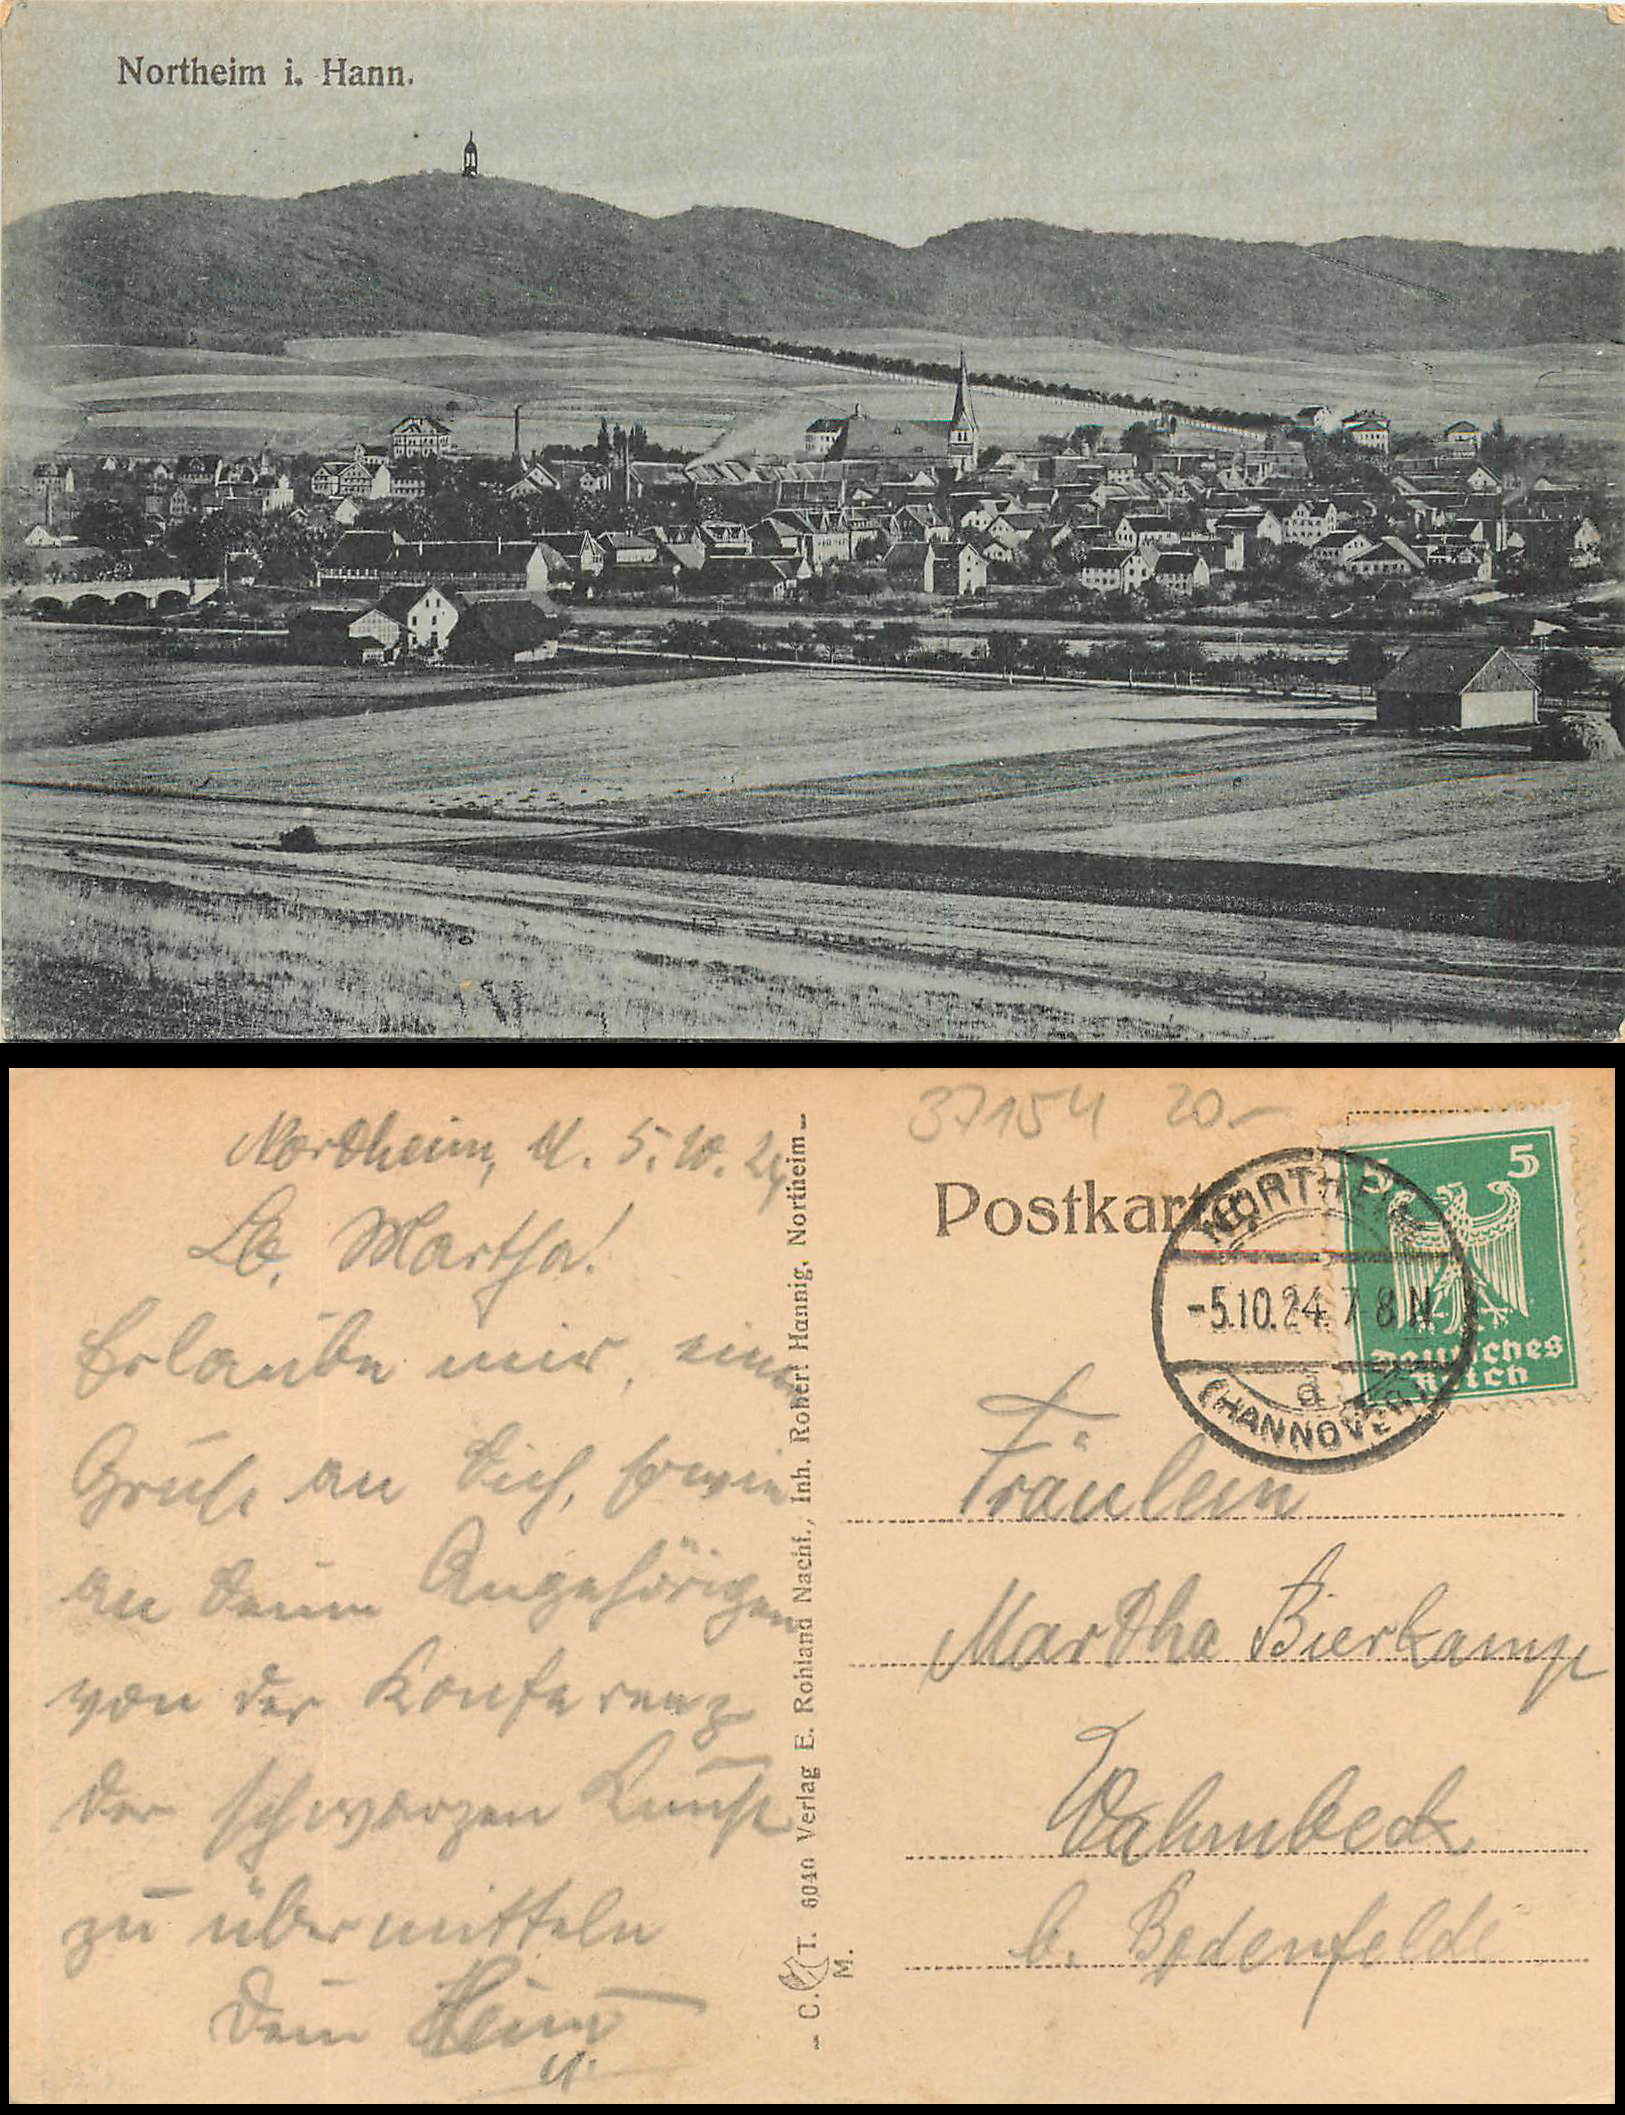 Northeim i. Hann.
Northeim, d. 5.10.24
Lb. Martha!
Erlaube mir, einen
Gruß an Dich, sowie
an Deine Angehörigen
von der Konferenz
der schwarzen Kunst
zu übermitteln
Dein
C. T. M. 6040 Verlag E. Rohland Nachf., Inh. Robert Hannig, Northeim
37154 20.-
Postkarte
5 5
Deutsches
Reich
NORTHEIM
-5.10.24. 7-8 N
a
(HANNOVER)
Fräulein
Martha Bierkamp
Wahmbeck
b. Bodenfelde